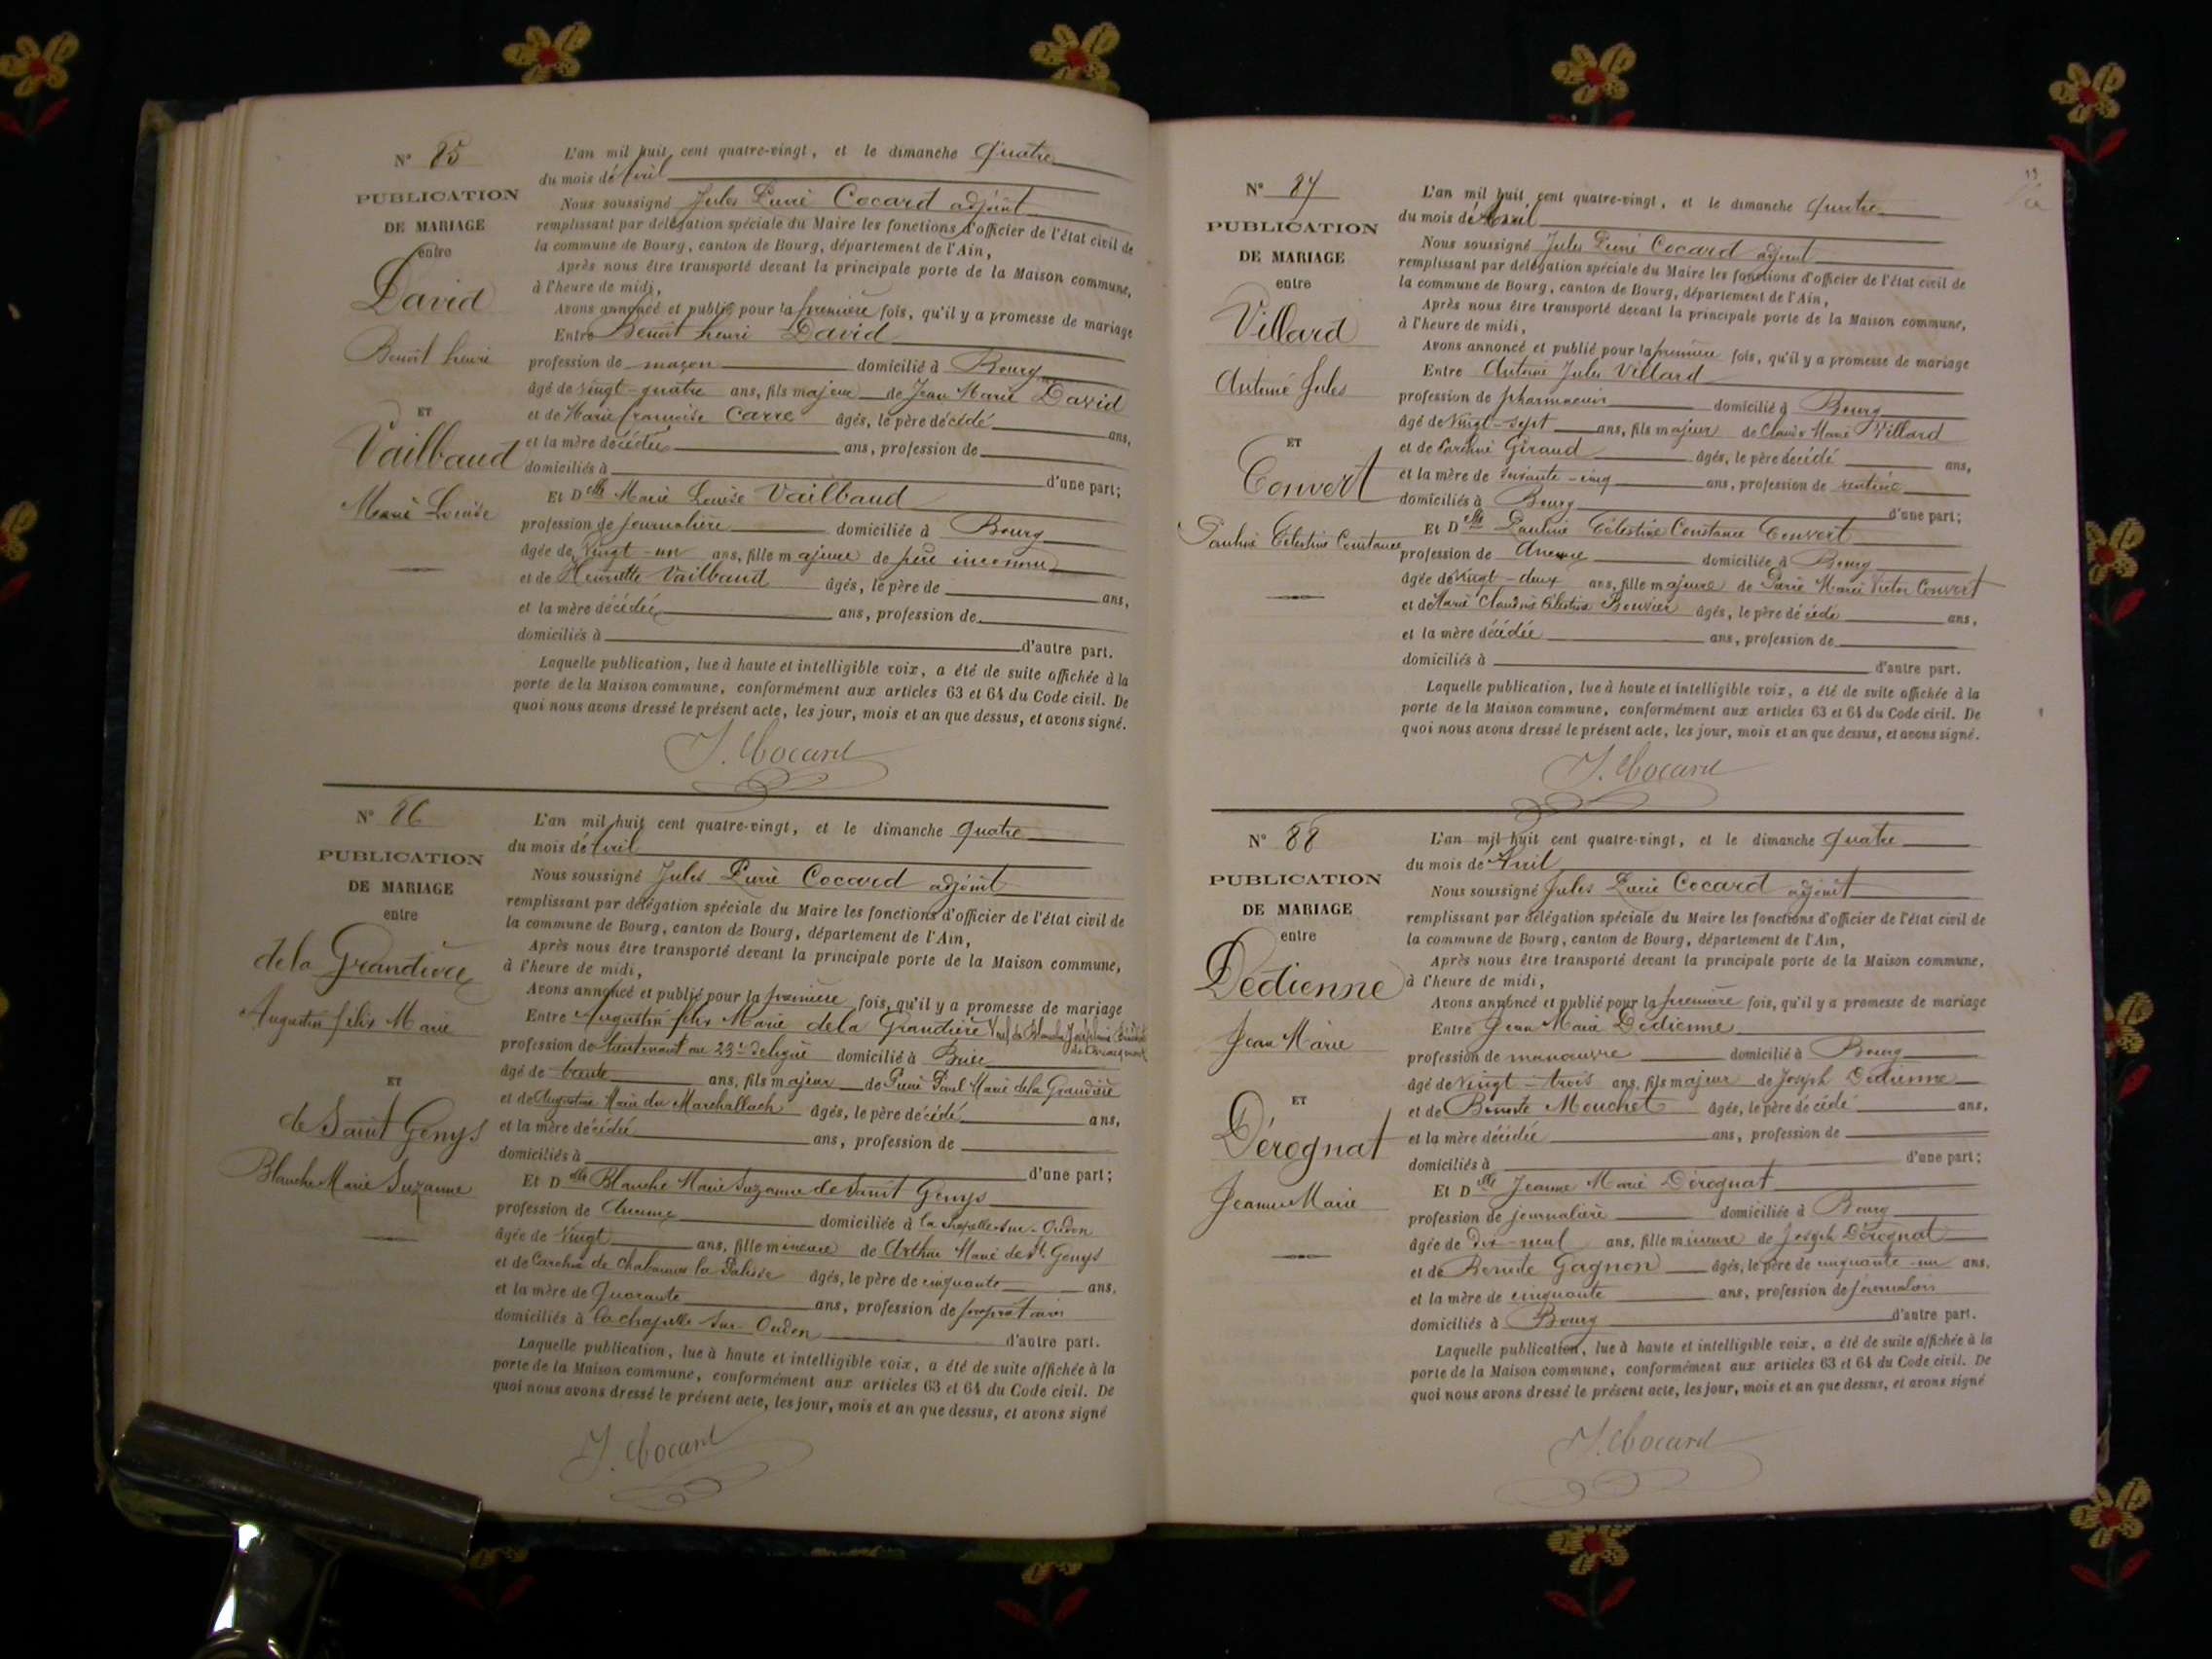 N° 85
PUBLICATION
DE MARIAGE
entre
David
Benoit henri
ET
Vailbaud
Marie Louise
L'an mil huit cent quatre-vingt, et le dimanche quatre
du mois d'Avril
Nous soussigné Jules Cocard adjoint
remplissant par délégation spéciale du Maire les fonctions d'officier de l'état civil de
la commune de Bourg, canton de Bourg, département de l'Ain,
Après nous être transporté devant la principale porte de la Maison commune,
à l'heure de midi,
Avons annoncé et publié pour la première fois, qu'il y a promesse de mariage
Entre Benoit henri David
profession de maçon domicilié à Bourg
âgé de vingt-quatre ans, fils majeur de Jean Marie David
et de Marie françoise Carre âgés, le père décédé ans,
et la mère décédée ans, profession de
domiciliés à d'une part;
Et Delle Marie Louise Vailbaud
profession de journalière domiciliée à Bourg
âgée de vingt-un ans, fille majeure de père inconnu
et de Henriette Vailbaud âgés, le père de ans,
et la mère décédée ans, profession de
domiciliés à d'autre part.
Laquelle publication, lue à haute et intelligible voix, a été de suite affichée à la
porte de la Maison commune, conformément aux articles 63 et 64 du Code civil. De
quoi nous avons dressé le présent acte, les jour, mois et an que dessus, et avons signé.
J. Cocard
N° 86
PUBLICATION
DE MARIAGE
entre
de la Grandière
Augustin felix Marie
ET
de Saint Genys
Blanche Marie Suzanne
L'an mil huit cent quatre-vingt, et le dimanche quatre
du mois d'Avril
Nous soussigné Jules Cocard adjoint
remplissant par délégation spéciale du Maire les fonctions d'officier de l'état civil de
la commune de Bourg, canton de Bourg, département de l'Ain,
Après nous être transporté devant la principale porte de la Maison commune,
à l'heure de midi,
Avons annoncé et publié pour la première fois, qu'il y a promesse de mariage
Entre Augustin felix Marie de la Grandière Veuf de Blanche Joséphine
profession de lieutenant au 23e de ligne domicilié à
âgé de trente ans, fils majeur de Paul Marie de la Grandière
et de Augustine Marie du Marchallach âgés, le père décédé ans,
et la mère décédée ans, profession de
domiciliés à d'une part;
Et Delle Blanche Marie Suzanne de Saint Genys
profession de Aucune domiciliée à la Chapelle-sur-Oudon
âgée de vingt ans, fille mineure de Arthur Marie de St Genys
et de Caroline de Chabannes la Palisse âgés, le père de cinquante ans,
et la mère de quarante ans, profession de propriétaires
domiciliés à la chapelle sur-Oudon d'autre part.
Laquelle publication, lue à haute et intelligible voix, a été de suite affichée à la
porte de la Maison commune, conformément aux articles 63 et 64 du Code civil. De
quoi nous avons dressé le présent acte, les jour, mois et an que dessus, et avons signé
J. Cocard
N° 87
PUBLICATION
DE MARIAGE
entre
Villard
Antoine Jules
ET
Convert
Pauline Célestine Constance
L'an mil huit cent quatre-vingt, et le dimanche quatre
du mois d'Avril
Nous soussigné Jules Cocard adjoint
remplissant par délégation spéciale du Maire les fonctions d'officier de l'état civil de
la commune de Bourg, canton de Bourg, département de l'Ain,
Après nous être transporté devant la principale porte de la Maison commune,
à l'heure de midi,
Avons annoncé et publié pour la première fois, qu'il y a promesse de mariage
Entre Antoine Jules Villard
profession de pharmacien domicilié à Bourg
âgé de vingt-sept ans, fils majeur de Claude Marie Villard
et de Caroline Giraud âgés, le père décédé ans,
et la mère de soixante-cinq ans, profession de rentière
domiciliés à Bourg d'une part;
Et Delle Pauline Célestine Constance Convert
profession de Aucune domiciliée à Bourg
âgée de vingt-deux ans, fille majeure de Marie Victor Convert
et de Marie Claudine Célestine Bouvier âgés, le père décédé ans,
et la mère décédée ans, profession de
domiciliés à d'autre part.
Laquelle publication, lue à haute et intelligible voix, a été de suite affichée à la
porte de la Maison commune, conformément aux articles 63 et 64 du Code civil. De
quoi nous avons dressé le présent acte, les jour, mois et an que dessus, et avons signé.
J. Cocard
N° 88
PUBLICATION
DE MARIAGE
entre
Dedienne
Jean Marie
ET
Dérognat
Jeanne Marie
L'an mil huit cent quatre-vingt, et le dimanche quatre
du mois d'Avril
Nous soussigné Jules Cocard adjoint
remplissant par délégation spéciale du Maire les fonctions d'officier de l'état civil de
la commune de Bourg, canton de Bourg, département de l'Ain,
Après nous être transporté devant la principale porte de la Maison commune,
à l'heure de midi,
Avons annoncé et publié pour la première fois, qu'il y a promesse de mariage
Entre Jean Marie Dedienne
profession de manoeuvre domicilié à Bourg
âgé de vingt-trois ans, fils majeur de Joseph Dedienne
et de Benoite Mouchet âgés, le père décédé ans,
et la mère décédée ans, profession de
domiciliés à d'une part;
Et Delle Jeanne Marie Dérognat
profession de journalière domiciliée à Bourg
âgée de dix-neuf ans, fille mineure de Joseph Dérognat
et de Benoite Gagnon âgés, le père de cinquante-un ans,
et la mère de cinquante ans, profession de journaliers
domiciliés à Bourg d'autre part.
Laquelle publication, lue à haute et intelligible voix, a été de suite affichée à la
porte de la Maison commune, conformément aux articles 63 et 64 du Code civil. De
quoi nous avons dressé le présent acte, les jour, mois et an que dessus, et avons signé
J. Cocard